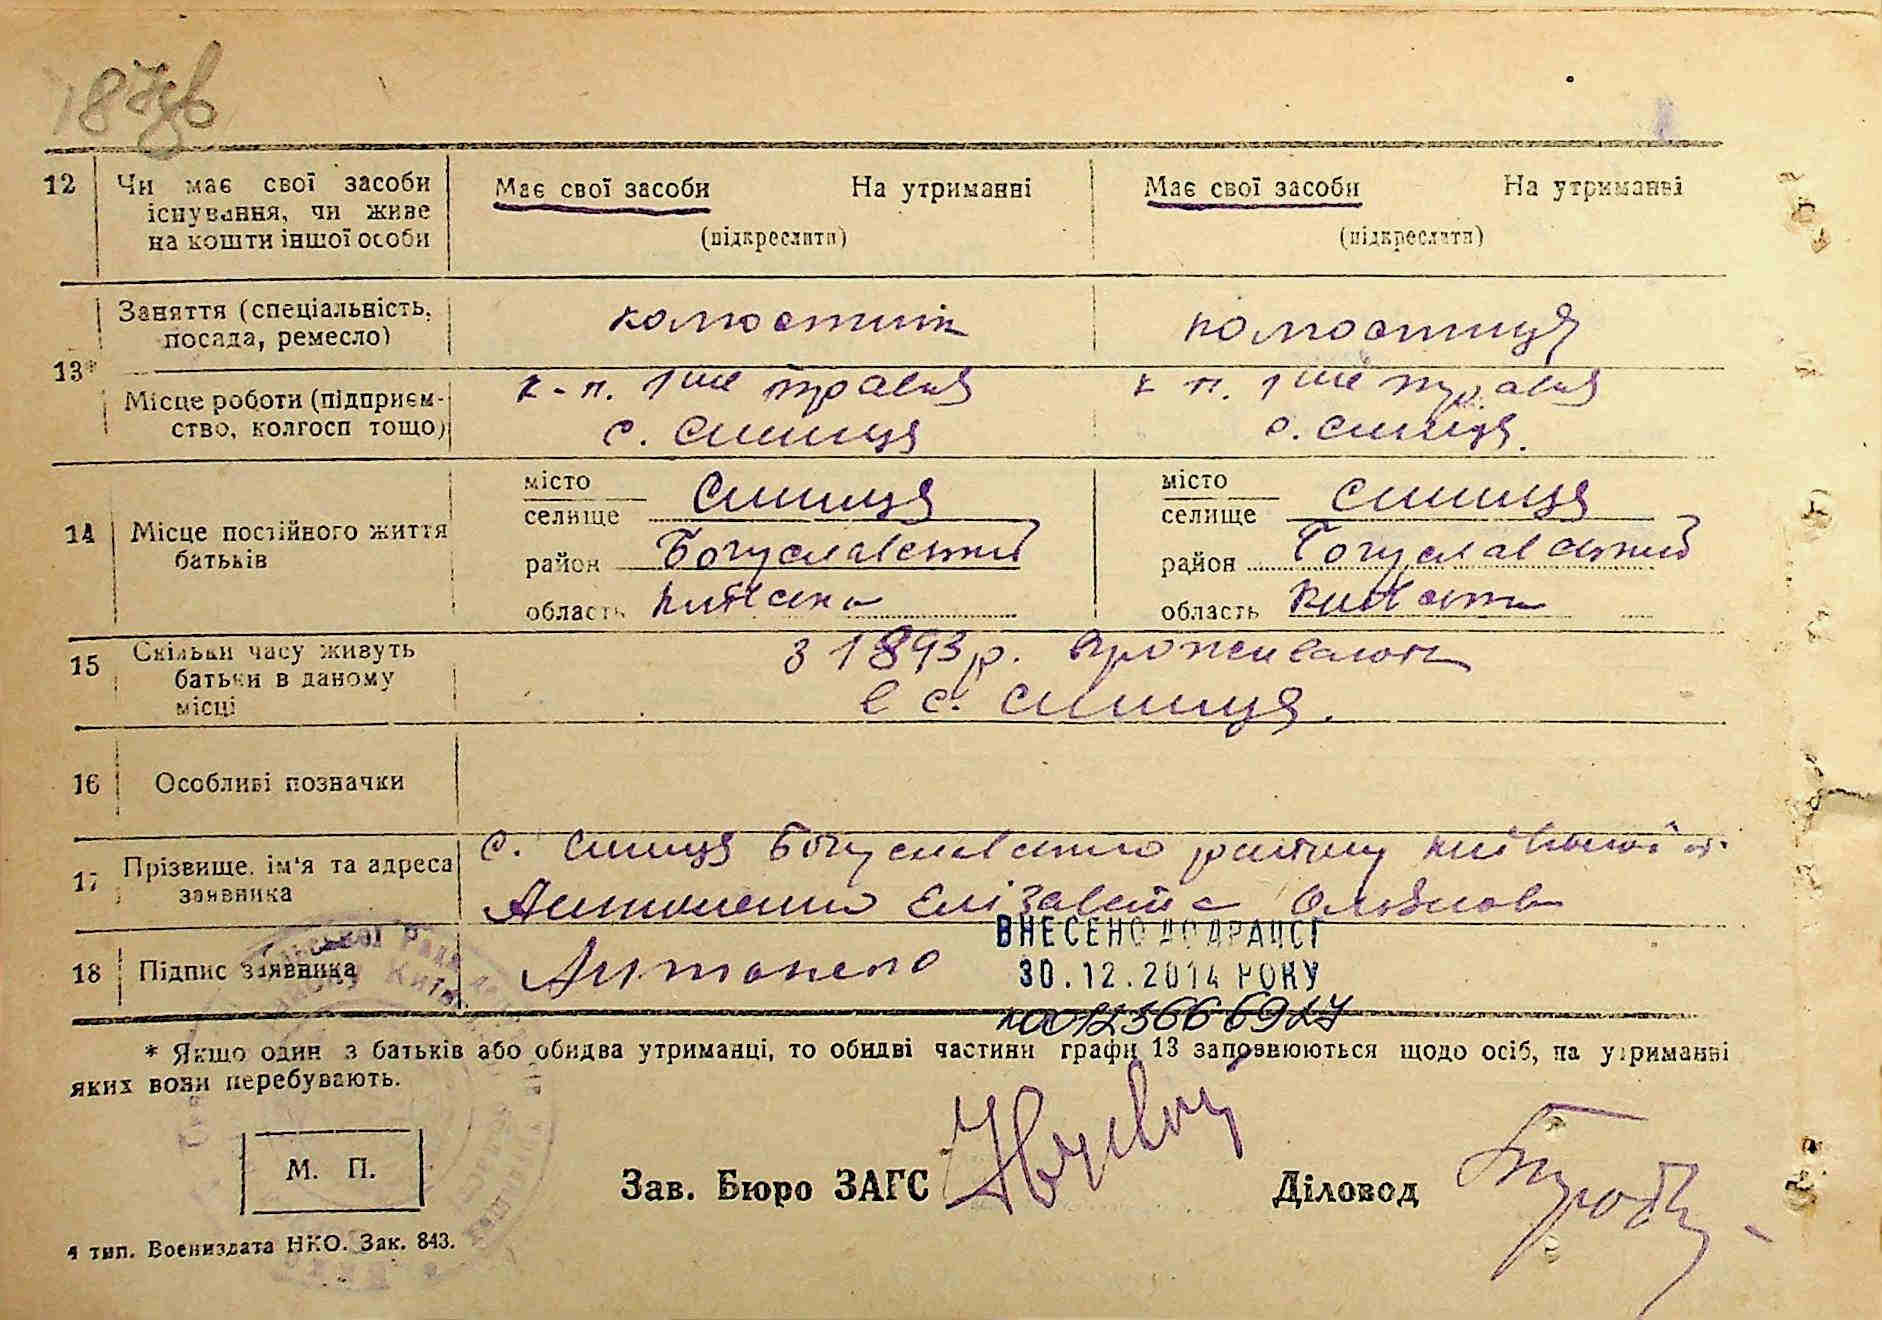 187зв
12 Чи має свої засоби існування, чи живе на кошти іншої особи
Має свої засоби На утриманні
(підкреслити)
Має свої засоби На утриманні
(підкреслити)
13*
Заняття (спеціальність, посада, ремесло)
колгостник
колгостниця
Місце роботи (підприємство, колгосп тощо)
к-п. 1ше травня
с. Синиця
к п. 1ше травня
с. Синиця.
14 Місце постійного життя батьків
місто
селище Синиця
район Богуславський
область Київська
місто
селище Синиця
район Богуславський
область Київська
15 Скільки часу живуть батьки в даному місці
з 1893 р. проживають
в с. Синиця.
16 Особливі позначки
17 Прізвище, ім'я та адреса заявника
с. Синиця Богуславського району Київської о.
Антоненко Єлізавета
18 Підпис заявника
Антоненко
ВНЕСЕНО ДО ДРАЦСГ
30.12.2014 РОКУ
* Якщо один з батьків або обидва утриманці, то обидві частини графи 13 заповнюються щодо осіб, на утриманні
яких вони перебувають.
М. П.
Зав. Бюро ЗАГС
Діловод
4 тип. Воениздата НКО. Зак. 843.